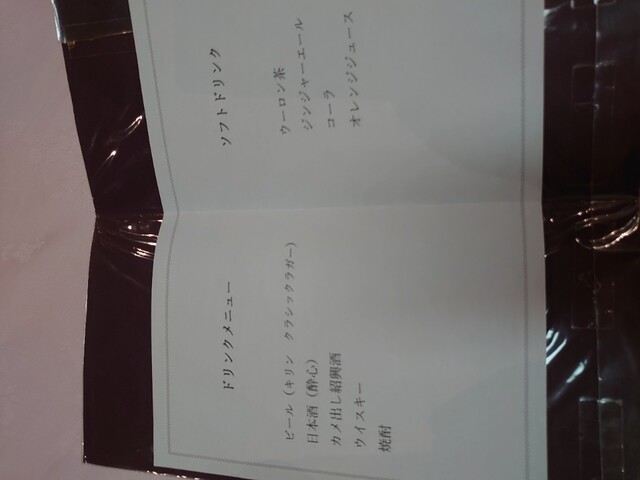 ドリンクメニュー
ビール（キリン　クラシックラガー）
日本酒（酔心）
カメ出し紹興酒
ウイスキー
焼酎
ソフトドリンク
ウーロン茶
ジンジャーエール
コーラ
オレンジジュース